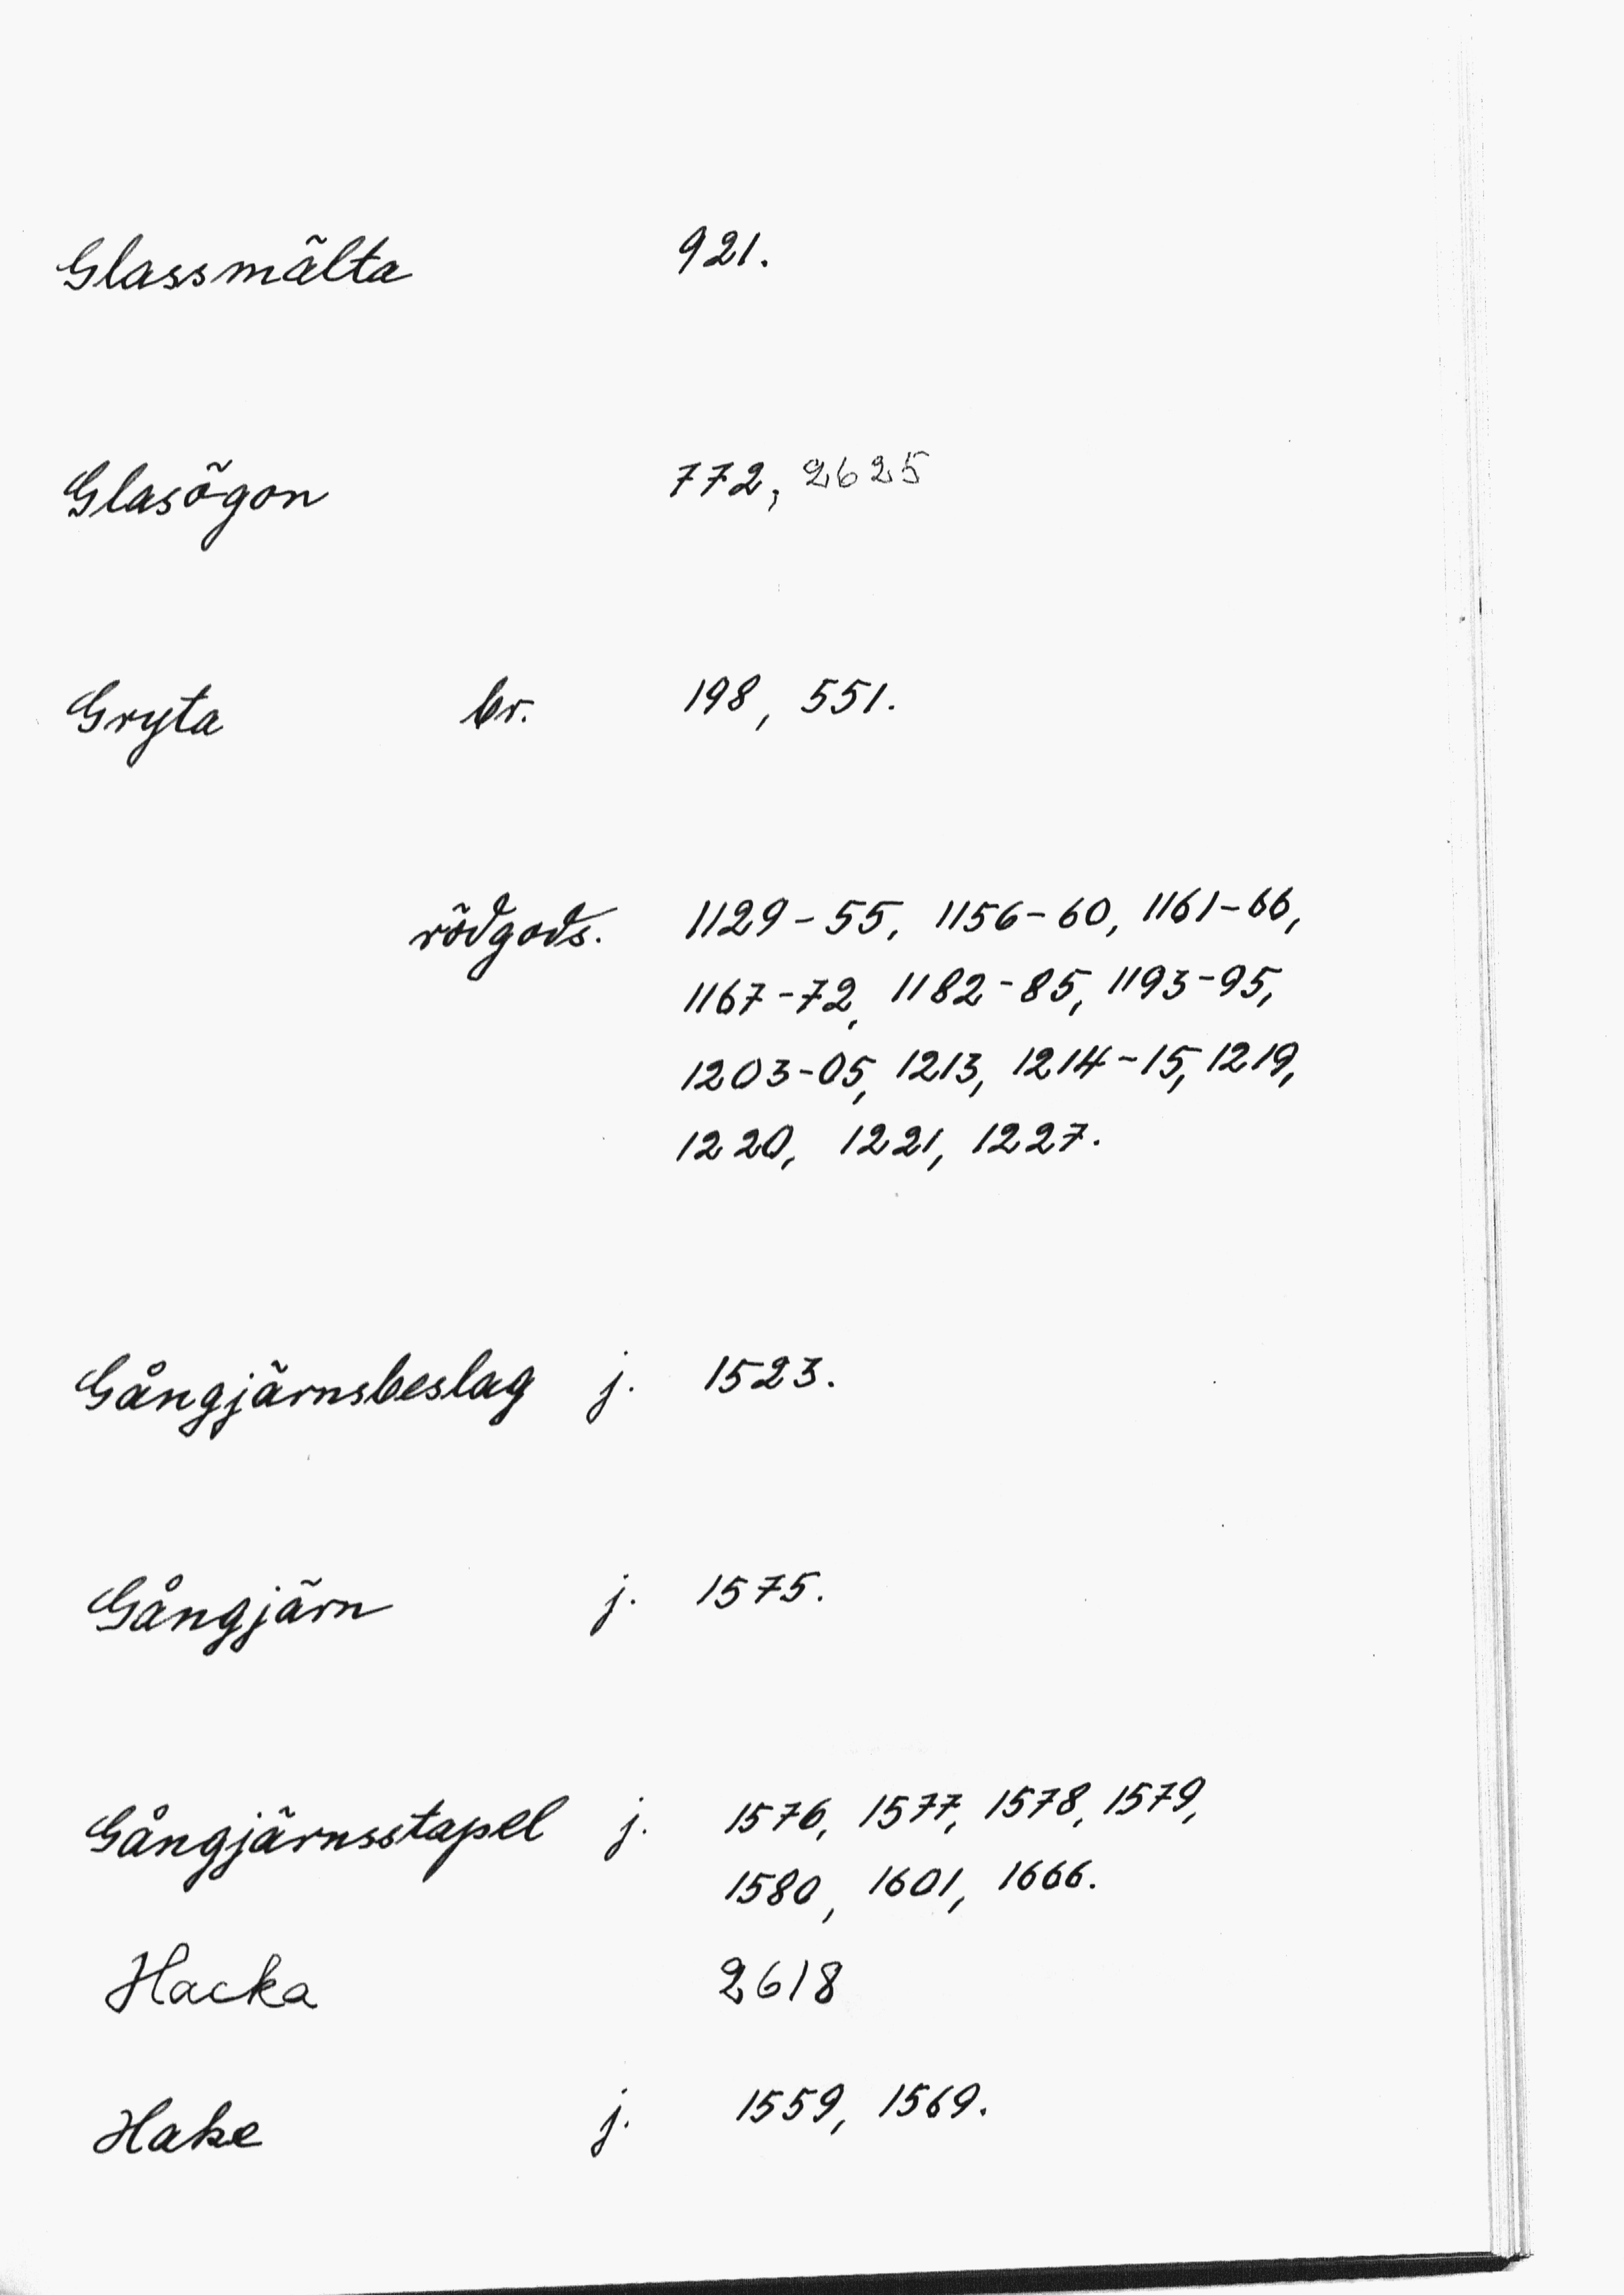 Glassmälta 921.
Glasögon 772, 2625
Gryta br. 198, 551.
rödgods. 1129-55, 1156-60, 1161-66,
1167-72, 1182-85, 1193-95,
1203-05, 1213, 1214-15, 1219,
1220, 1221, 1227.
Gångjärnsbeslag j. 1523.
Gångjärn j. 1575.
Gångjärnsstapel j. 1576, 1577, 1578, 1579,
1580, 1601, 1666.
Hacka 2618
Hake j. 1559, 1569.